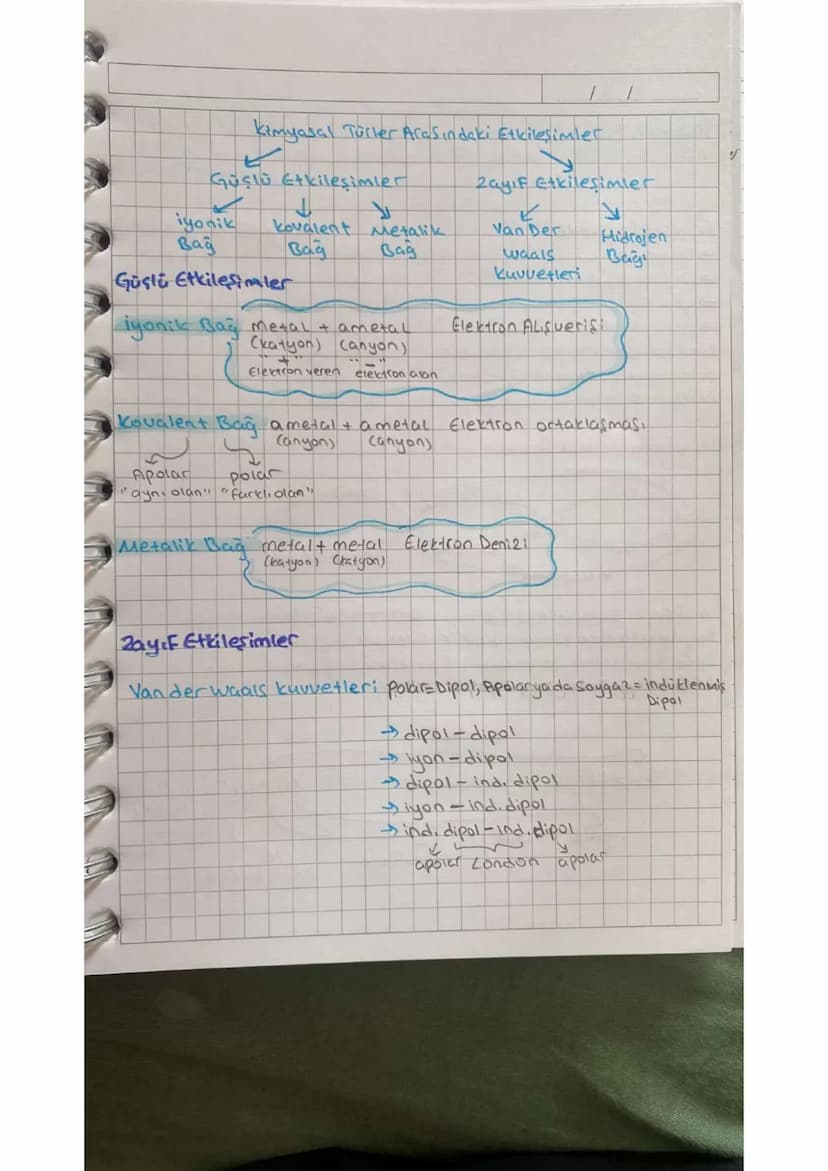 / /
Kimyasal Türler Arasındaki Etkileşimler
Güçlü Etkileşimler Zayıf Etkileşimler
iyonik Bağ
Kovalent Bağ
Metalik Bağ
Van Der Waals Kuvvetleri
Hidrojen Bağı
Güçlü Etkileşimler
İyonik Bağ metal + ametal Elektron Alışverişi
(katyon) (anyon)
"+" "-"
Elektron veren elektron alan
Kovalent Bağ ametal + ametal Elektron ortaklaşması
(anyon) (anyon)
Apolar polar
"aynı olan" "farklı olan"
Metalik Bağ metal + metal Elektron Denizi
(katyon) (katyon)
Zayıf Etkileşimler
Van der waals kuvvetleri Polar=Dipol, Apolar ya da Soygaz = indüklenmiş
Dipol
→ dipol - dipol
→ iyon - dipol
→ dipol - ind. dipol
→ iyon - ind. dipol
→ ind. dipol - ind. dipol
apolar London apolar